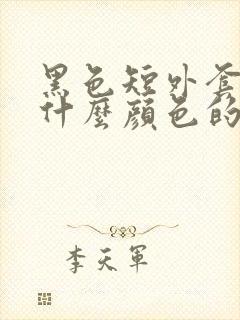 黑色短外套
什麼顏色的
李天軍